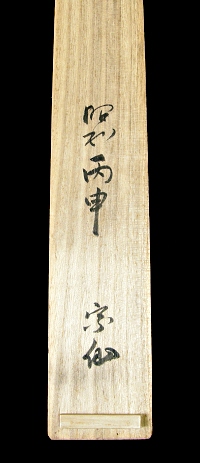 昭和丙申 宗仙